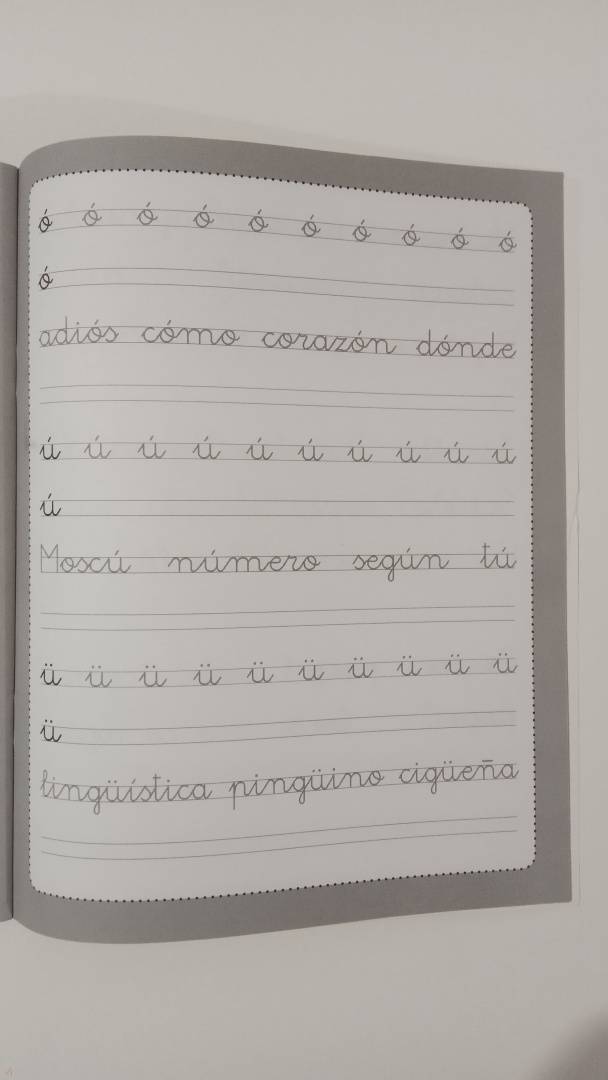 ó ó ó ó ó ó ó ó ó ó
ó
adiós cómo corazón dónde
ú ú ú ú ú ú ú ú ú ú
ú
Moscú número según tú
ü ü ü ü ü ü ü ü ü ü
ü
lingüística pingüino cigüeña